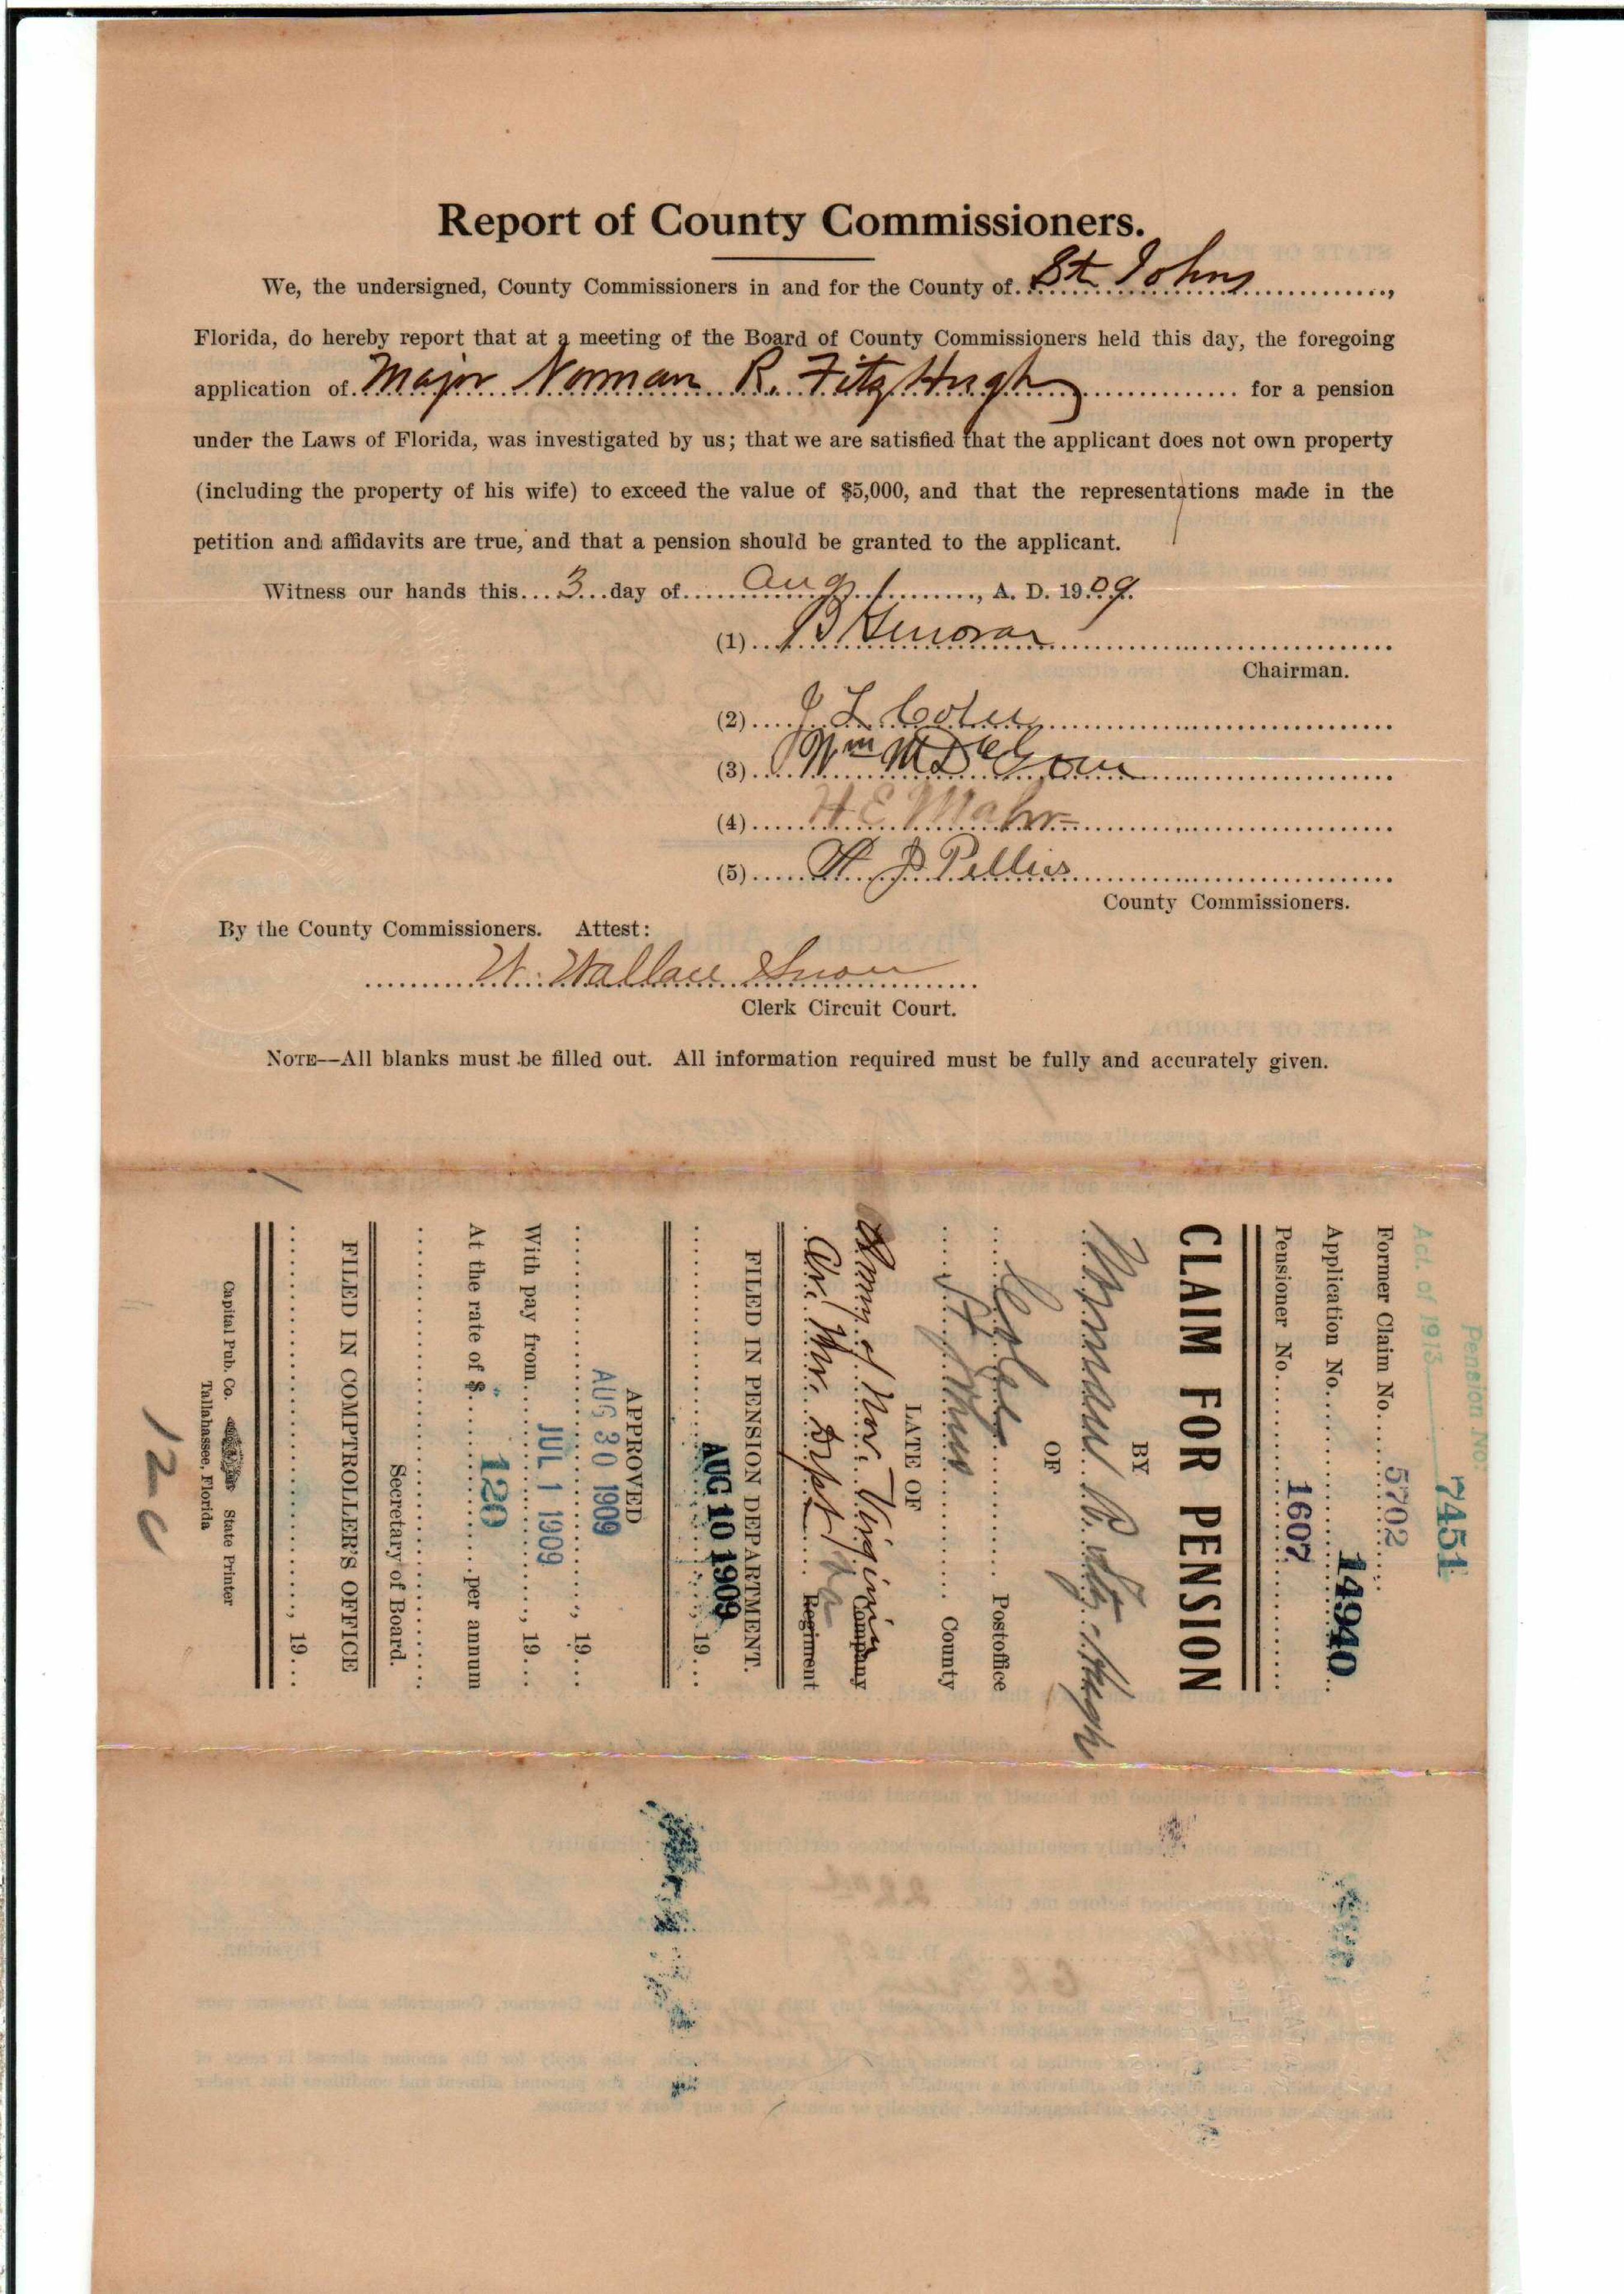 Report of County Commissioners.
We, the undersigned, County Commissioners in and for the County of. St Johns,
Florida, do hereby report that at a meeting of the Board of County Commissioners held this day, the foregoing
application of. Major Norman R. FitzHugh for a pension
under the Laws of Florida, was investigated by us; that we are satisfied that the applicant does not own property
(including the property of his wife) to exceed the value of $5,000, and that the representations made in the
petition and affidavits are true, and that a pension should be granted to the applicant.
Witness our hands this 3 day of Aug, A. D. 1909.
(1) B Genovar
Chairman.
(2) J L
(3) Wm M
(4) H E Mahr
(5) J Pellicer
County Commissioners.
By the County Commissioners. Attest:
W. Wallace Snow
Clerk Circuit Court.
NOTE--All blanks must be filled out. All information required must be fully and accurately given.
Pension No: 7451
Act. of 1913
Former Claim No. 5702
Application No. 14940
Pensioner No. 1607
CLAIM FOR PENSION
BY
Norman R. Fitz-Hugh
OF
Postoffice
St Johns County
LATE OF
Army of Nor. Virginia Company
Regiment
FILED IN PENSION DEPARTMENT.
AUG 10 1909, 19
APPROVED
AUG 30 1909, 19
With pay from JUL 1 1909, 19
At the rate of $ 120 per annum
Secretary of Board.
FILED IN COMPTROLLER'S OFFICE
, 19
Capital Pub. Co. State Printer
Tallahassee, Florida
120